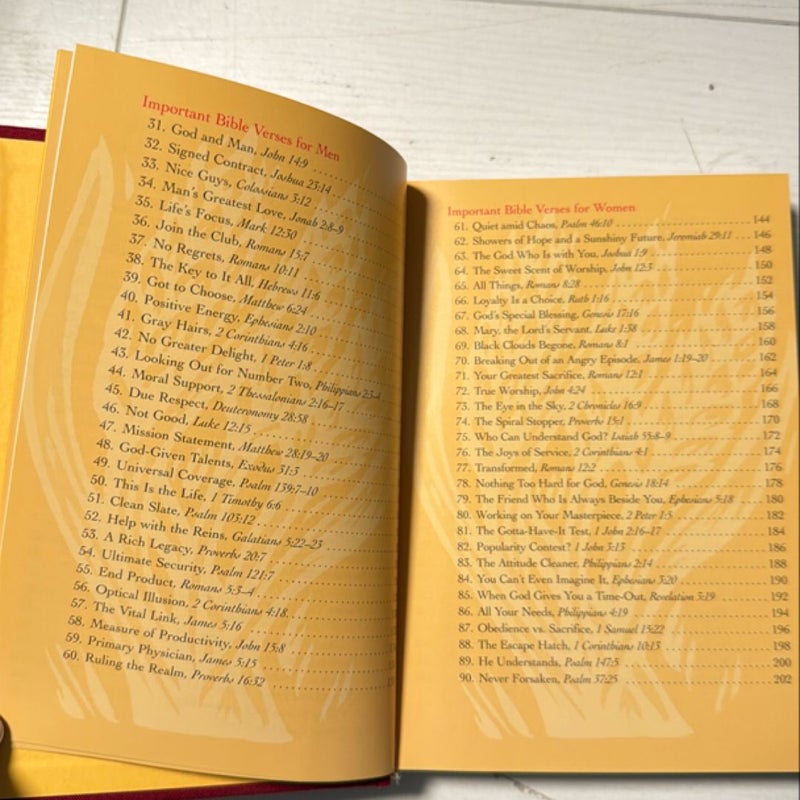 Important Bible Verses for Men
31. God and Man, John 14:9
32. Signed Contract, Joshua 23:14
33. Nice Guys, Colossians 3:12
34. Man's Greatest Love, Jonah 2:8–9
35. Life's Focus, Mark 12:30
36. Join the Club, Romans 15:7
37. No Regrets, Romans 10:11
38. The Key to It All, Hebrews 11:6
39. Got to Choose, Matthew 6:24
40. Positive Energy, Ephesians 2:10
41. Gray Hairs, 2 Corinthians 4:16
42. No Greater Delight, 1 Peter 1:8
43. Looking Out for Number Two, Philippians 2:3–4
44. Moral Support, 2 Thessalonians 2:16–17
45. Due Respect, Deuteronomy 28:58
46. Not Good, Luke 12:15
47. Mission Statement, Matthew 28:19–20
48. God-Given Talents, Exodus 31:3
49. Universal Coverage, Psalm 139:7–10
50. This Is the Life, 1 Timothy 6:6
51. Clean Slate, Psalm 103:12
52. Help with the Reins, Galatians 5:22–23
53. A Rich Legacy, Proverbs 20:7
54. Ultimate Security, Psalm 121:7
55. End Product, Romans 5:3–4
56. Optical Illusion, 2 Corinthians 4:18
57. The Vital Link, James 5:16
58. Measure of Productivity, John 15:8
59. Primary Physician, James 5:15
60. Ruling the Realm, Proverbs 16:32
Important Bible Verses for Women
61. Quiet amid Chaos, Psalm 46:10 144
62. Showers of Hope and a Sunshiny Future, Jeremiah 29:11 146
63. The God Who Is with You, Joshua 1:9 148
64. The Sweet Scent of Worship, John 12:3 150
65. All Things, Romans 8:28 152
66. Loyalty Is a Choice, Ruth 1:16 154
67. God's Special Blessing, Genesis 17:16 156
68. Mary, the Lord's Servant, Luke 1:38 158
69. Black Clouds Begone, Romans 8:1 160
70. Breaking Out of an Angry Episode, James 1:19–20 162
71. Your Greatest Sacrifice, Romans 12:1 164
72. True Worship, John 4:24 166
73. The Eye in the Sky, 2 Chronicles 16:9 168
74. The Spiral Stopper, Proverbs 15:1 170
75. Who Can Understand God? Isaiah 55:8–9 172
76. The Joys of Service, 2 Corinthians 4:1 174
77. Transformed, Romans 12:2 176
78. Nothing Too Hard for God, Genesis 18:14 178
79. The Friend Who Is Always Beside You, Ephesians 5:18 180
80. Working on Your Masterpiece, 2 Peter 1:3 182
81. The Gotta-Have-It Test, 1 John 2:16–17 184
82. Popularity Contest? 1 John 3:13 186
83. The Attitude Cleaner, Philippians 2:14 188
84. You Can't Even Imagine It, Ephesians 3:20 190
85. When God Gives You a Time-Out, Revelation 3:19 192
86. All Your Needs, Philippians 4:19 194
87. Obedience vs. Sacrifice, 1 Samuel 15:22 196
88. The Escape Hatch, 1 Corinthians 10:13 198
89. He Understands, Psalm 147:5 200
90. Never Forsaken, Psalm 37:25 202